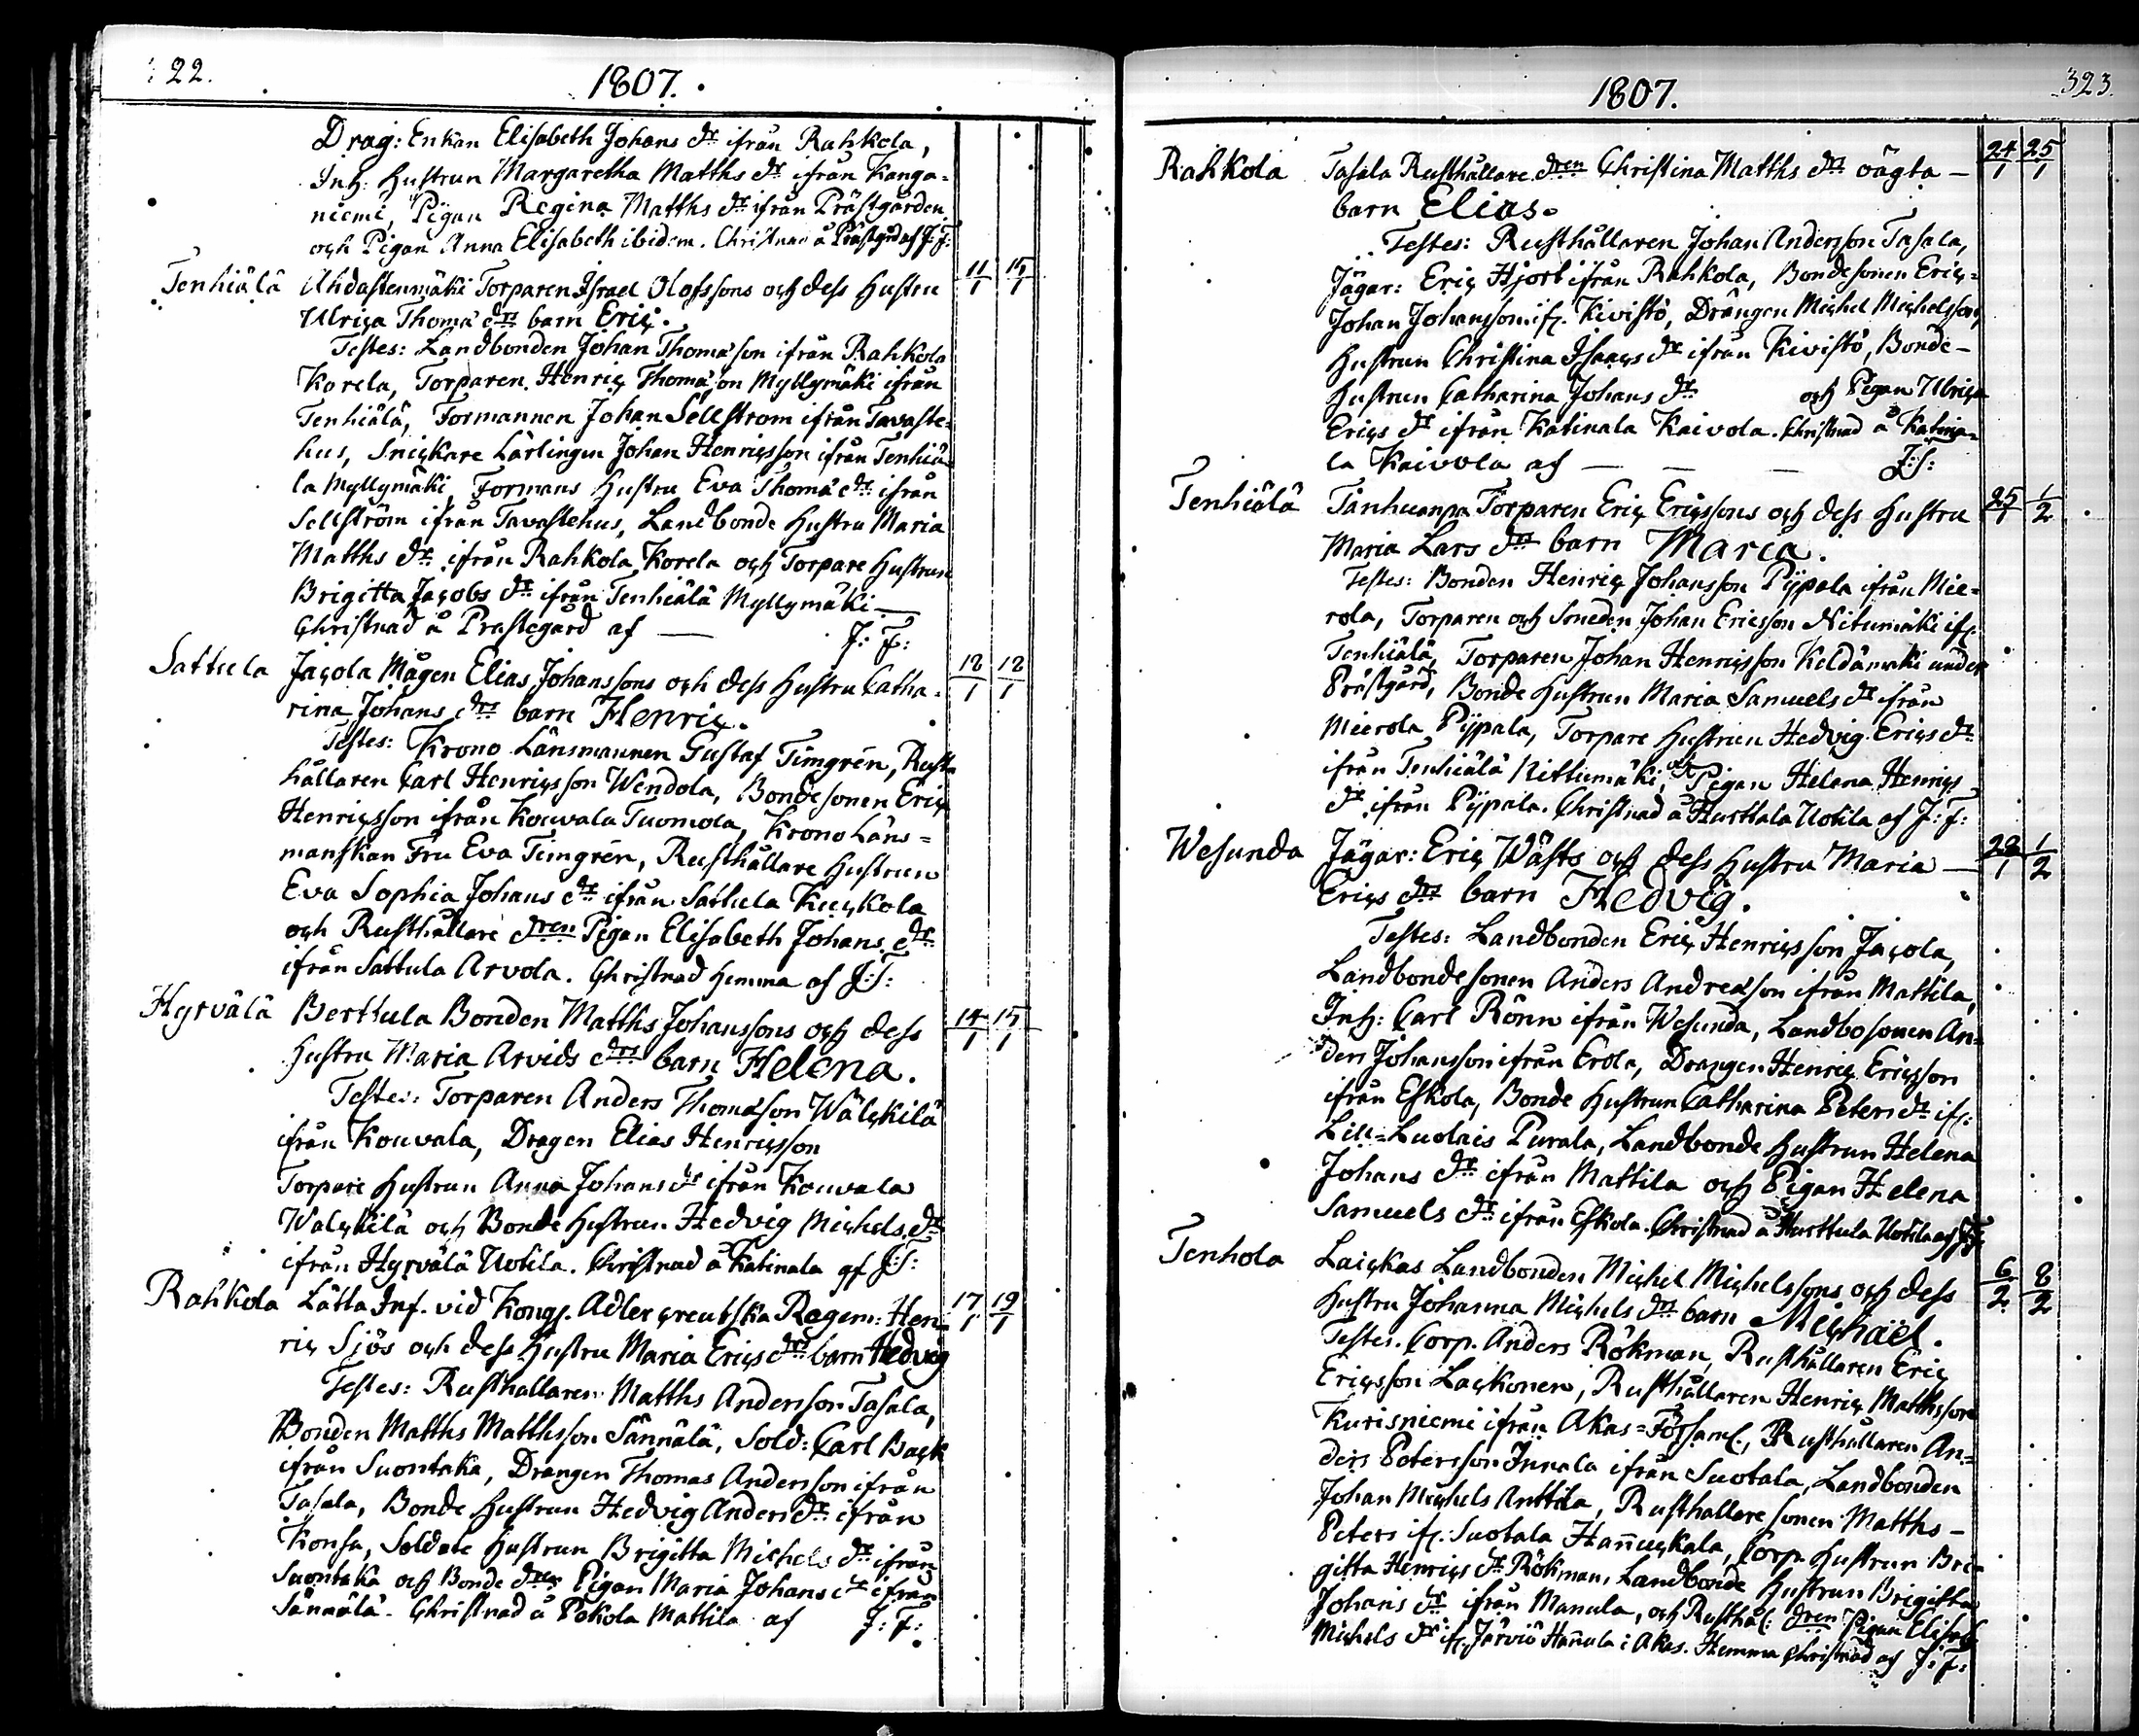 322.
1807.
Drag: Enkan Elisabeth Johans dr ifrån Rahkola,
Inh: Hustrun Margaretha Matths dr ifrån Kanga=
niemi, Pigan Regina Matths dr ifrån Prästgården
och Pigan Anna Elisabeth ibidem. Christnad å Prästgrd af J: F:
Tenhiälä Ahdastenmäki Torparen Israel Olofssons och dess Hustru 11/1 15/1
Ulrica Thomæ drs barn Eric.
Testes: Landbonden Johan Thomæson ifrån Rahkola
Korela, Torparen Henric Thomæson Myllymäki ifrån
Tenhiälä, Formannen Johan Sellstrom ifrån Tavaste=
hus, Snickare Lärlingen Johan Henricsson ifrån Tenhiä
la Myllymäki, Formans Hustru Eva Thomæ dr ifrån
Sellström ifrån Tavastehus, Landbonde Hustru Maria
Matths dr ifrån Rahkola Korela och Torpare Hustrun
Brigitta Jacobs dr ifrån Tenhiälä Myllymäki —
Christnad å Prastegård af — J: F:
Sattula Jacola Mågen Elias Johanssons och dess Hustru Catha= 12/1 12/1
rina Johans drs barn Henric.
Testes: Krono Länsmannen Gustaf Timgrén, Rust
hållaren Carl Henricsson Wendola, Bondesonen Eric
Henricsson ifrån Kouvala Tuomola, Krono Läns=
manskan Fru Eva Timgrén, Rusthållare Hustrun
Eva Sophia Johans dr ifrån Sattula Kuckola
och Rusthållare dren Pigan Elisabeth Johans dr
ifrån Sattula Arvola. Christnad hemma af J: S:
Hyrvälä Berttula Bonden Matths Johanssons och dess 14/1 15/1
Hustru Maria Arvids drs barn Helena.
Testes: Torparen Anders Thomæson Wälckilä
ifrån Kouvala, Dragen Elias Henricsson
Torpare Hustrun Anna Johans dr ifrån Kouvala
Walckilä och Bonde Hustrun Hedvig Michels dr
ifrån Hyrvälä Uotila. Christnad å Katinala af J: S:
Rahkola Lätta Inf. vid Kongs. Adlercreutska Regem: Hen= 17/1 19/1
ric Sjös och dess Hustru Maria Erics drs barn Hedvig
Testes: Rusthallaren Matths Andersson Tasala,
Bonden Matths Matthsson Sännälä, Sold: Carl Back
ifrån Suontaka, Drangen Thomas Andersson ifrån
Tasala, Bonde Hustrun Hedvig Anders dr ifrån
Konsa, Soldate Hustrun Brigitta Michels dr ifrån
Suontaka och Bonde dren Pigan Maria Johans dr ifrån
Sännälä. Christnad å Pekola Mattila af J: F:
323.
1807.
Rahkola Tasala Rusthållare dren Christina Matths drs oägta — 24/1 25/1
barn Elias.
Testes: Rusthållaren Johan Andersson Tasala,
Jägar: Eric Hjort ifrån Rahkola, Bondesonen Eric=
Johan Johansson if. Kivistö, Drängen Michel Michelsson,
Hustrun Christina Isaacs dr ifrån Kivistö, Bonde=
Hustrun Catharina Johans dr och Pigan Ulrica
Erics dr ifrån Katinala Kaivola. Christnad å Katina=
la Kaivola af — — — J: S:
Tenhiälä Tanhuanpa Torparen Eric Ericssons och dess Hustru 25/1 1/2
Maria Lars drs barn Maria.
Testes: Bonden Henric Johansson Pÿpala ifrån Mie=
rola, Torparen och Smeden Johan Ericsson Nitumäki if:
Tenhiälä, Torparen Johan Henricsson Keldämäki under
Prästgård, Bonde Hustrun Maria Samuels dr ifrån
Mierola Pÿpala, Torpare Hustrun Hedvig Erics dr
ifrån Tenhiälä Nittumäki, och Pigan Helena Henrics
dr ifrån Pÿpala. Christnad å Hurttala Uotila af J: F:
Wesunda Jägar: Eric Wästs och dess Hustru Maria — 28/1 1/2
Erics drs barn Hedvig.
Testes: Landbonden Eric Henricsson Jacola,
Landbondesonen Anders Andreæson ifrån Mattila,
Inh: Carl Rönn ifrån Wesunda, Landbosonen An=
ders Johansson ifrån Erola, Drangen Henric Ericsson
ifrån Eskola, Bonde Hustrun Catharina Peters dr if:
Lill=Luolais Purala, Landbonde Hustrun Helena
Johans dr ifrån Mattila och Pigan Helena
Samuels dr ifrån Eskola. Christnad å Hurttula Uotila af J: F:
Tenhola Laickas Landbonden Michel Michelssons och dess 6/2 8/2
Hustru Johanna Michels drs barn Michäel.
Testes. Corp. Anders Rökman, Rusthållaren Eric
Ericsson Lackonen, Rusthållaren Henric Matthsson
Kurisniemi ifrån Akas=Församl., Rusthållaren An=
ders Petersson Innala ifrån Suotala, Landbonden
Johan Michels Anttila, Rusthallare sonen Matths —
Peters if: Suotala Hannuckala, Corp. Hustrun Bri=
gitta Henrics dr Rökman, Landbonde Hustrun Brigitta
Johans dr ifrån Manula, och Rusthål: dren Pigan Elisab
Michels dr if. Järviö Hannula i Akas. Hemma Christnad af J: F: